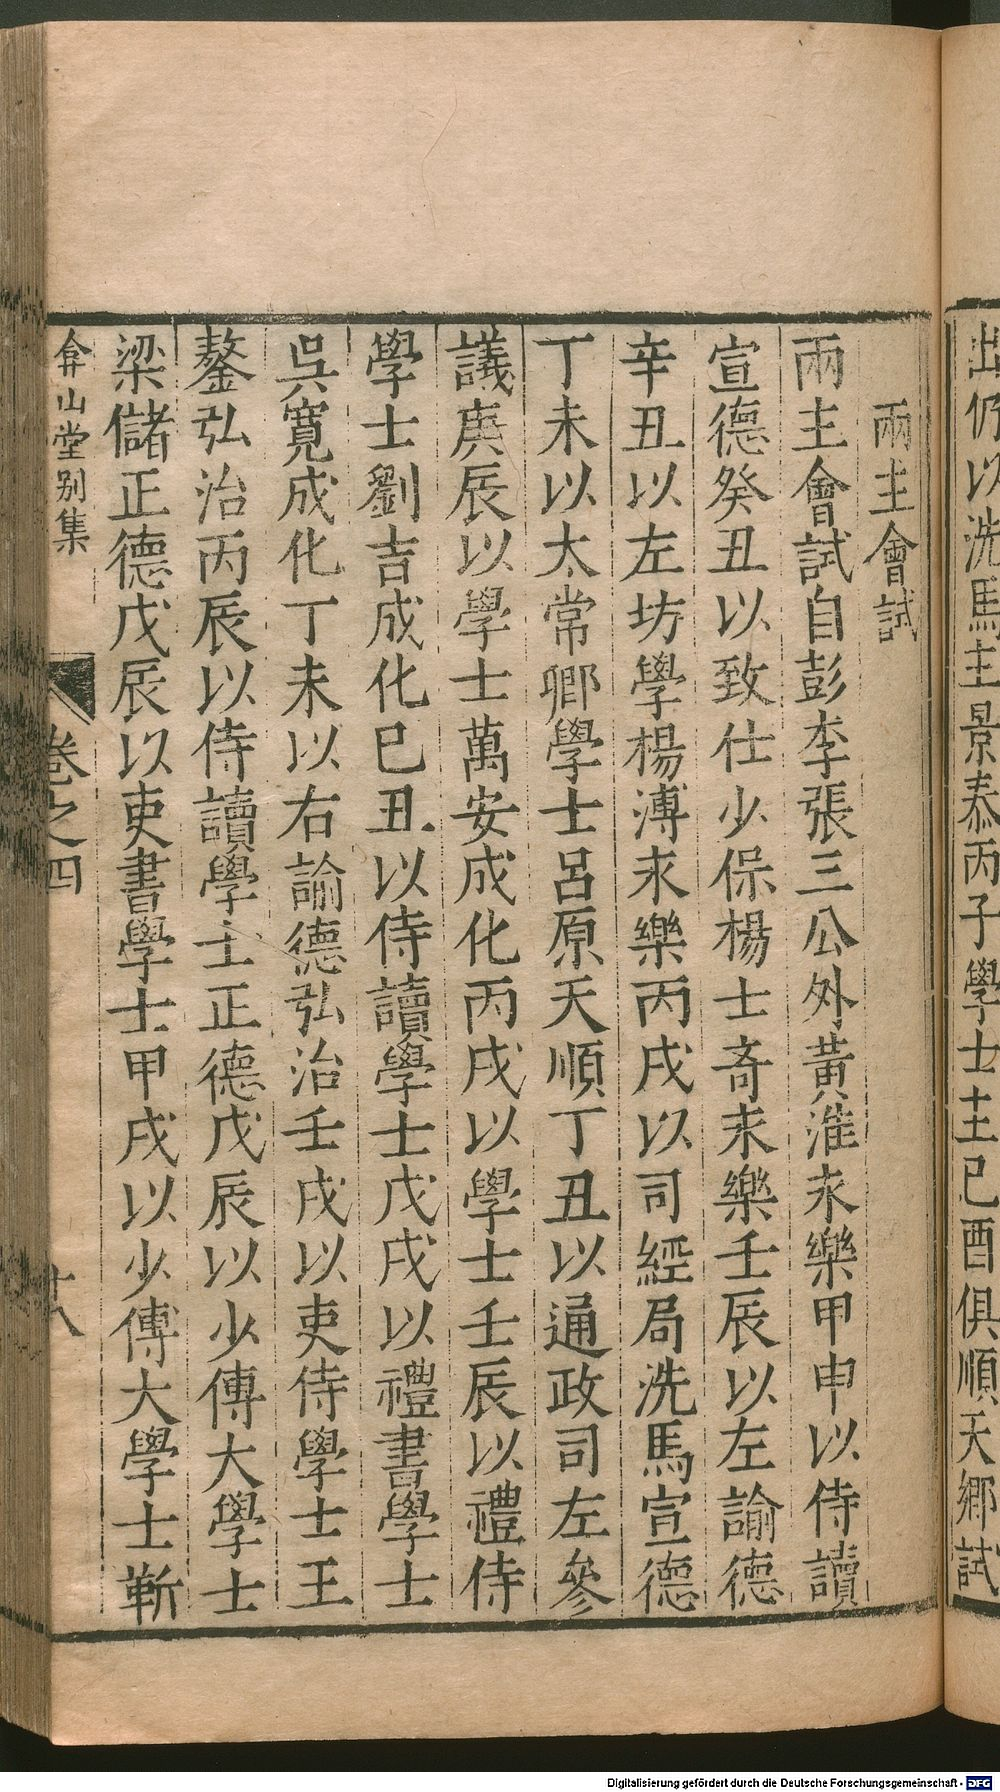 出仍以洗馬主景泰丙子學士主己酉俱順天鄉試
兩主會試
兩主會試自彭李張三公外黃淮永樂甲申以侍讀
宣德癸丑以致仕少保楊士奇永樂壬辰以左諭德
辛丑以左坊學楊溥永樂丙戌以司經局洗馬宣德
丁未以太常卿學士呂原天順丁丑以通政司左參
議庚辰以學士萬安成化丙戌以學士壬辰以禮侍
學士劉吉成化己丑以侍讀學士戊戌以禮書學士
吳寬成化丁未以右諭德弘治壬戌以吏侍學士王
鏊弘治丙辰以侍讀學士正德戊辰以少傅大學士
梁儲正德戊辰以吏書學士甲戌以少傅大學士靳
弇山堂別集 卷之四 十八
Digitalisierung gefördert durch die Deutsche Forschungsgemeinschaft - DFG